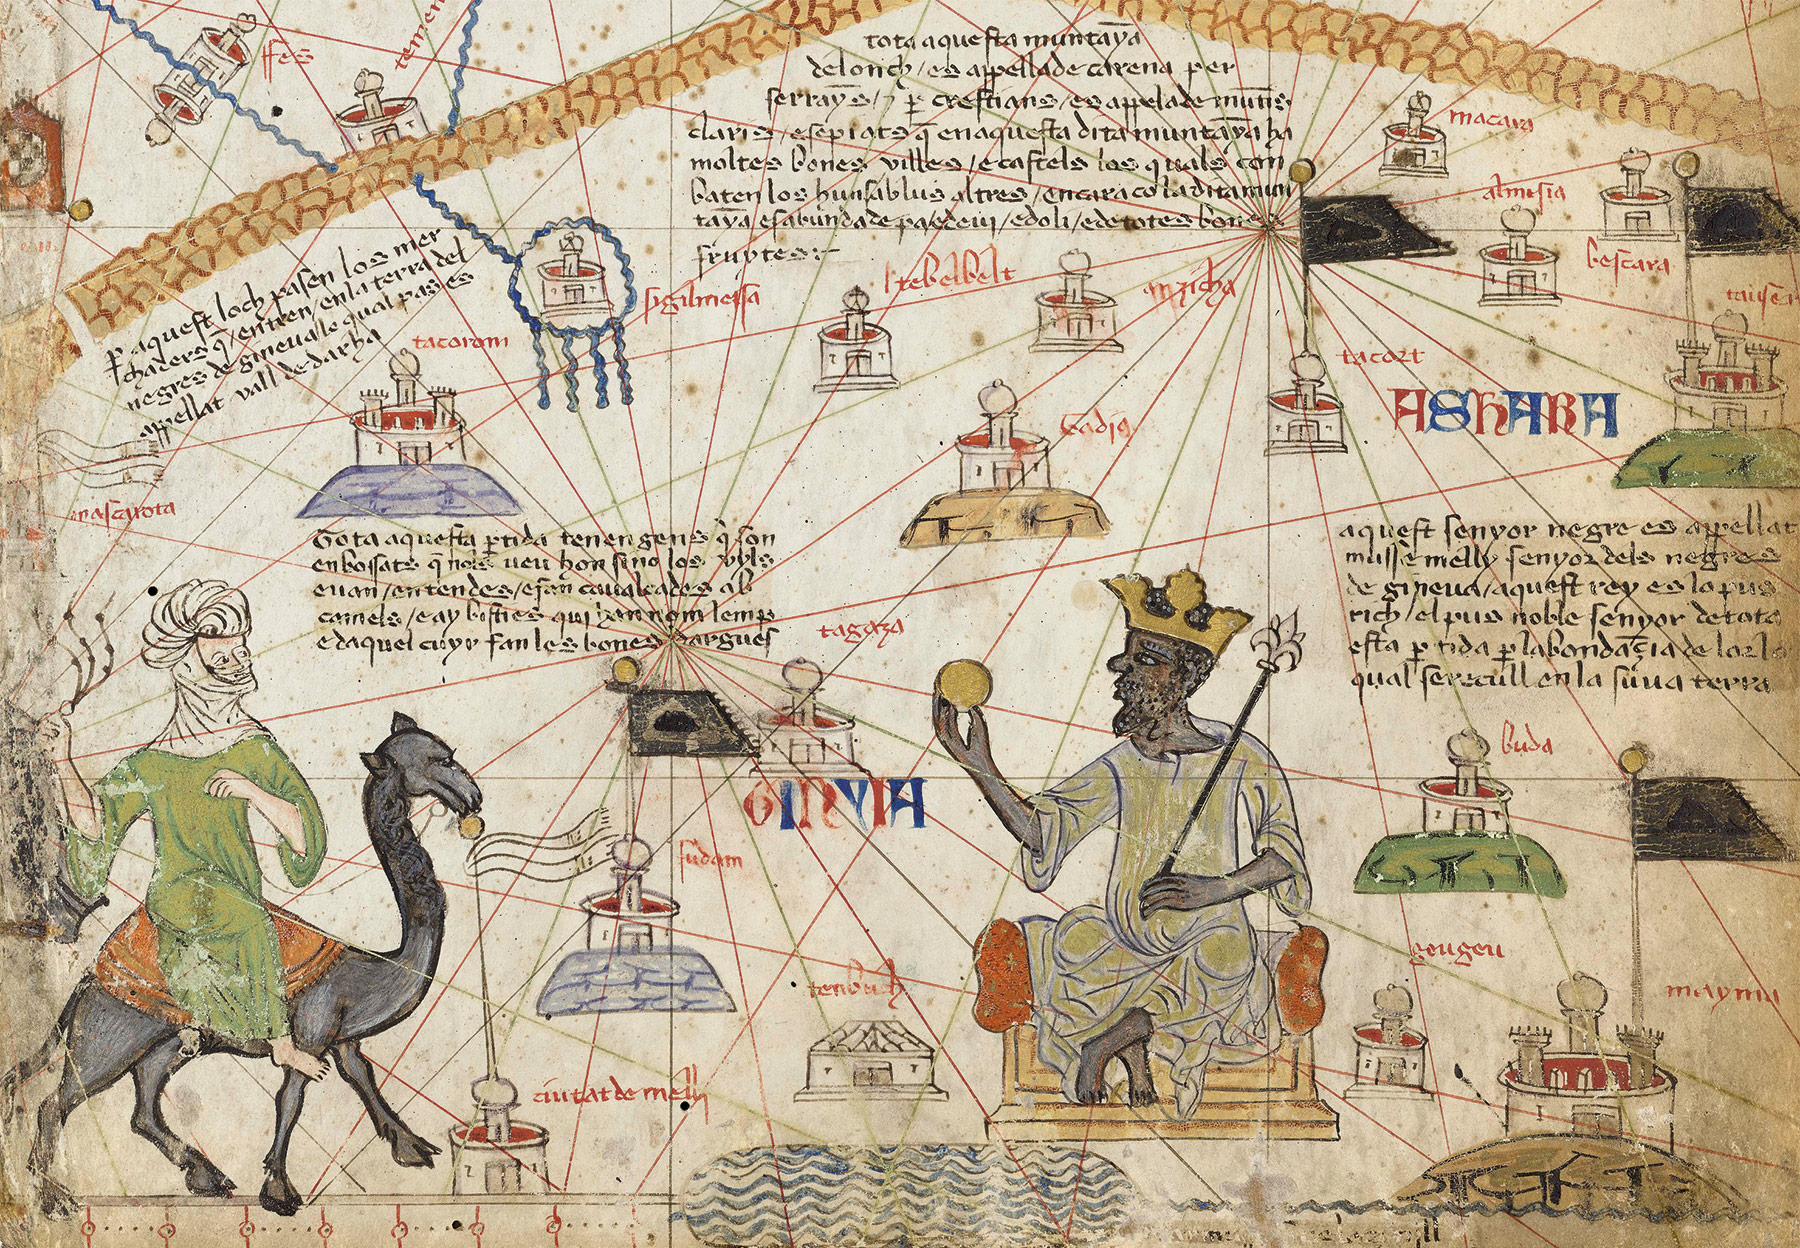 ffes
temen
tota aquesta muntaya
de lonch / es appellade carena per
serrayns / ⁊ per crestians / es appelade muntis
claris / e sepiats q̄ en aquesta dita muntaya ha
moltes bones villes / e castels los quals com
baten los huns ab lus altres / encara co la dita mun
taya es abundade de pa e de vi / e doli / e de totes bones
fruytes:-
macara
almisia
bescara
per aquest loch pasen los mer
chaders q̄ / entren / en la terra dels
negres de gineva / le qual pas es
appellat vall de darha
sigilmessa
tebelbelt
anzicha
tacorom
tacort
ASHARA
tadis
mascarota
Tota aquesta ptida tenen gens q̄ son
enbossats q̄ nols veu hon sino los uyls
e van / en tendes / e fan cavalcades ab
camels / e ay bisties qui han nom lemp
e daquel cuyr fan les bones dargues
aquest senyor negre es appellat
musse melly senyor dels negres
de gineva / aquest rey es lo pus
rich / el pus noble senyor de tota
esta ptida p labondancia de lor lo
qual se recull en la suua terra
tagaza
GINYIA
sudam
buda
tenbuch
geugeu
mayma
ciutat de melly